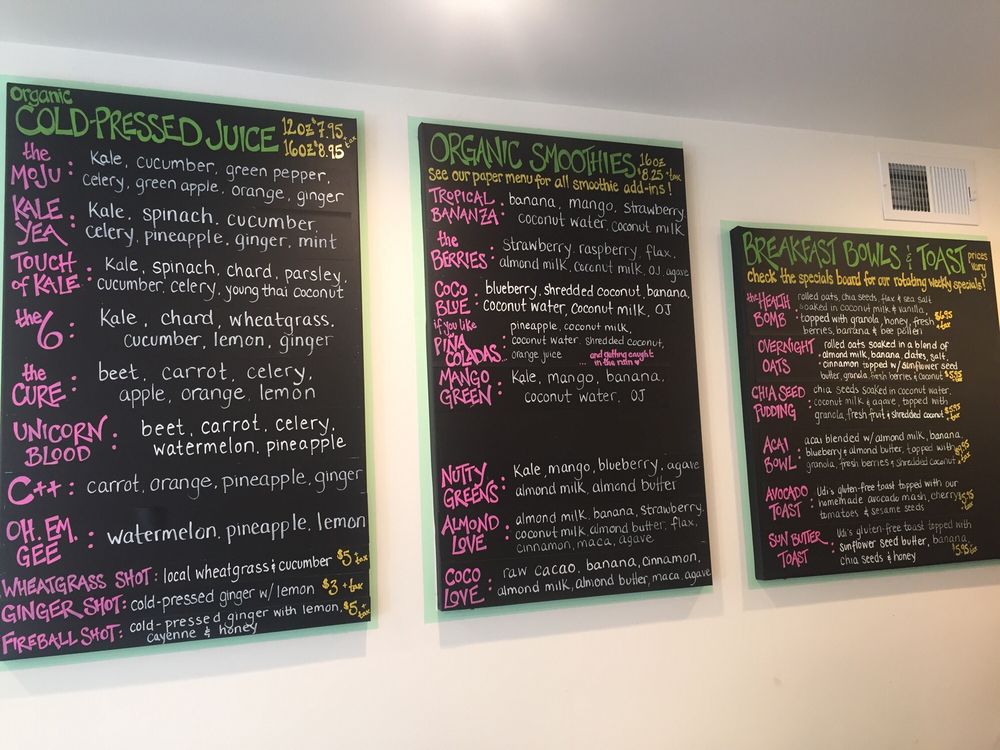 organic
COLD-PRESSED JUICE 12oz $7.95
16oz $8.95 + tax
the MOJU: Kale, cucumber, green pepper,
celery, green apple, orange, ginger
KALE YEA: Kale, spinach, cucumber,
celery, pineapple, ginger, mint
TOUCH of KALE: Kale, spinach, chard, parsley,
cucumber, celery, young thai coconut
the 6: Kale, chard, wheatgrass,
cucumber, lemon, ginger
the CURE: beet, carrot, celery,
apple, orange, lemon
UNICORN BLOOD: beet, carrot, celery,
watermelon, pineapple
C++: carrot, orange, pineapple, ginger
OH. EM. GEE: watermelon, pineapple, lemon
WHEATGRASS SHOT: local wheatgrass & cucumber $5 + tax
GINGER SHOT: cold-pressed ginger w/ lemon $3 + tax
FIREBALL SHOT: cold-pressed ginger with lemon, $5 + tax
cayenne & honey
ORGANIC SMOOTHIES 16oz
$8.25 + tax
see our paper menu for all smoothie add-ins!
TROPICAL BANANZA: banana, mango, strawberry
coconut water, coconut milk
the BERRIES: strawberry, raspberry, flax,
almond milk, coconut milk, OJ, agave
COCO BLUE: blueberry, shredded coconut, banana,
coconut water, coconut milk, OJ
if you like PIÑA COLADAS... pineapple, coconut milk,
coconut water, shredded coconut,
orange juice ... and getting caught
in the rain ♥
MANGO GREEN: Kale, mango, banana,
coconut water, OJ
NUTTY GREENS: Kale, mango, blueberry, agave
almond milk, almond butter
ALMOND LOVE: almond milk, banana, strawberry,
coconut milk, almond butter, flax,
cinnamon, maca, agave
COCO LOVE: raw cacao, banana, cinnamon,
almond milk, almond butter, maca, agave
BREAKFAST BOWLS & TOAST prices vary
check the specials board for our rotating weekly specials!
the HEALTH BOMB: rolled oats, chia seeds, flax & sea salt
soaked in coconut milk & vanilla,
topped with granola, honey, fresh $6.95 + tax
berries, banana & bee pollen
OVERNIGHT OATS: rolled oats soaked in a blend of
almond milk, banana, dates, salt,
cinnamon topped w/ sunflower seed
butter, granola, fresh berries & coconut $5.95
CHIA SEED PUDDING: chia seeds soaked in coconut water,
coconut milk & agave, topped with
granola, fresh fruit & shredded coconut $5.95
ACAI BOWL: acai blended w/ almond milk, banana,
blueberry & almond butter, topped with
granola, fresh berries & shredded coconut + tax
AVOCADO TOAST: Udi's gluten-free toast topped with our
homemade avocado mash, cherry
tomatoes & sesame seeds
SUN BUTTER TOAST: Udi's gluten-free toast topped with
sunflower seed butter, banana,
chia seeds & honey $5.95 + tax